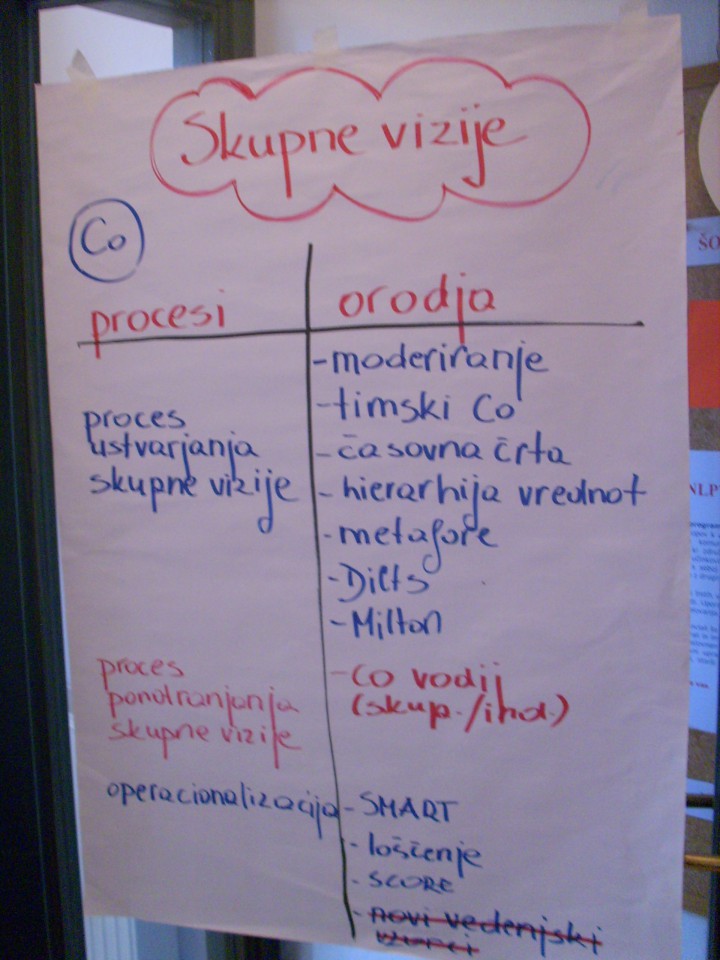 Skupne vizije
Co
procesi
orodja
proces
ustvarjanja
skupne vizije
- moderiranje
- timski Co
- časovna črta
- hierarhija vrednot
- metafore
- Dilts
- Milton
proces
ponotranjanja
skupne vizije
- Co vodij
(skup./ind.)
operacionalizacija
- SMART
- loščenje
- SCORE
- novi vedenjski
vzorci
ŠO
NLP